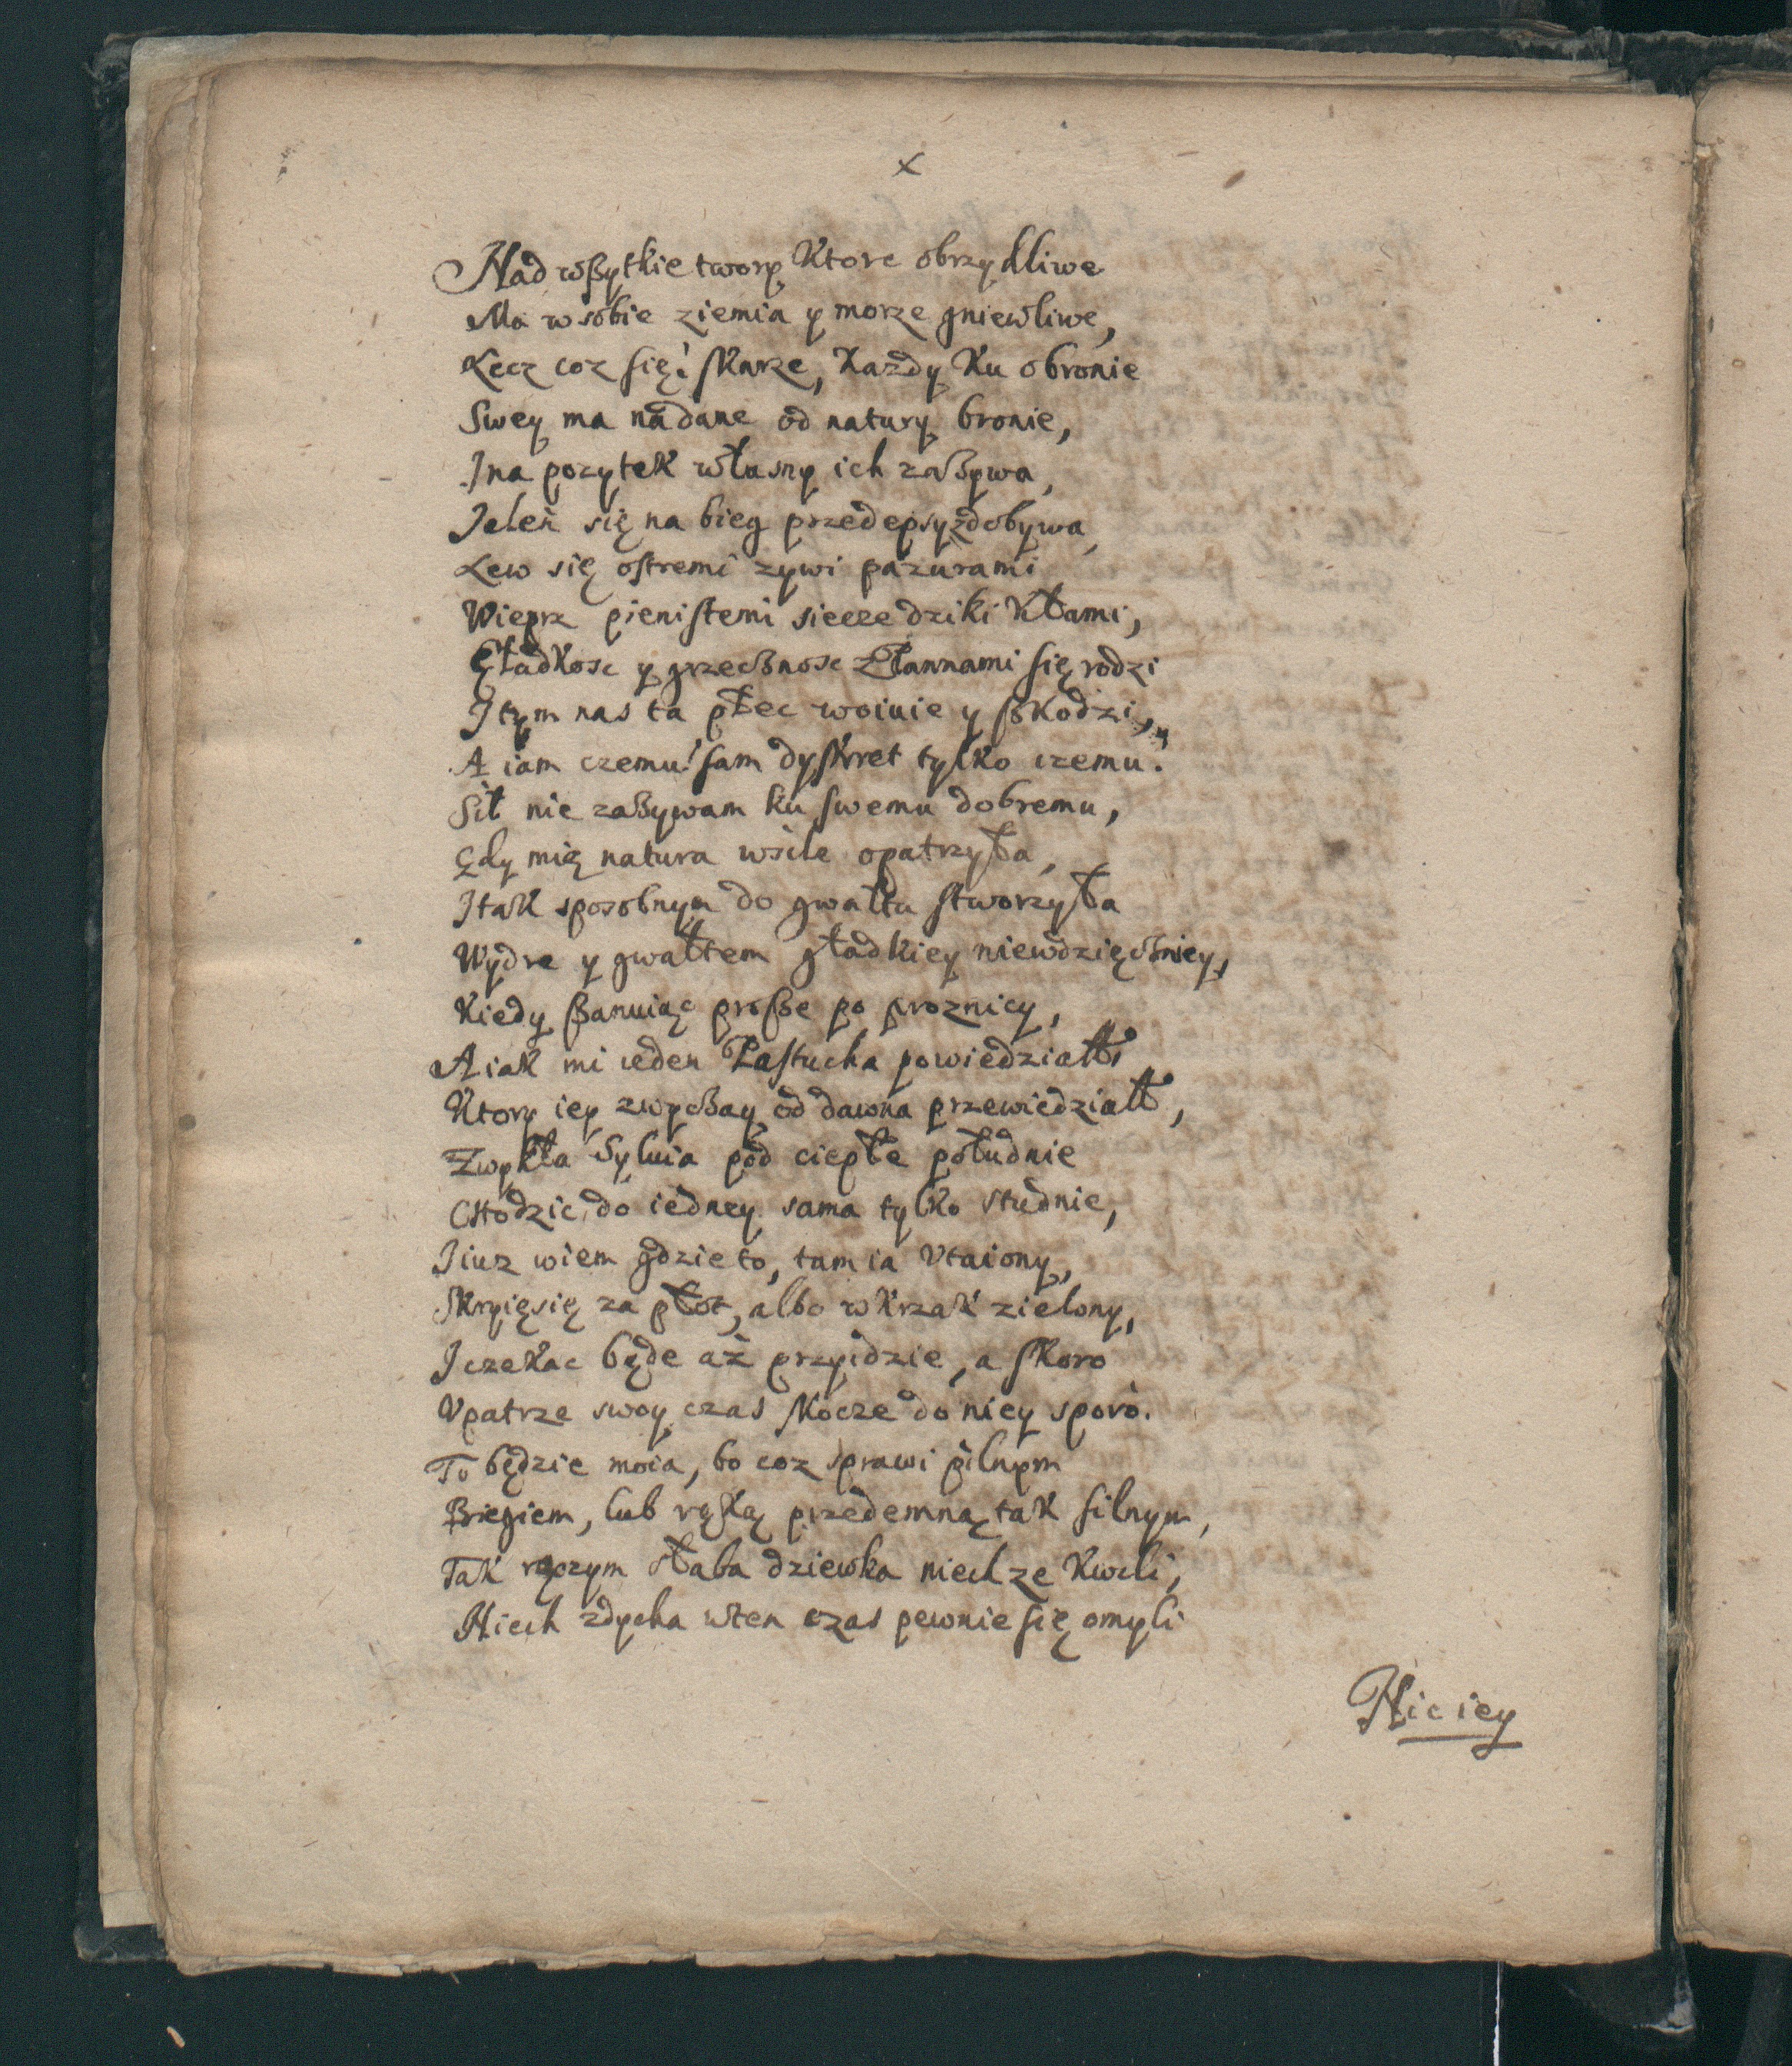 x
Nad wßytkie twory Ktore obrzydliwe
Ma w sobie ziemia y morze gniewliwe,
Lecz coz się! skarze, Kazdy Ku obronie
Swey ma nadane od natury bronie,
I na pozytek własny ich zaßywa,
Jeleń się na bieg przedepsy zdobywa,
Lew się ostremi zywi pazurami
Wieprz pienistemi siecze dziki Kłami,
Gładkosc y grzeczßnosc z Pannami się rodzi
I tym nas ta płec woiuie y ßkodzi,
A iam czemu! sam dyskret tylko czemu.
Sił nie zaßywam ku swemu dobremu,
Gdy mię natura wsile opatrzyła,
I tak sposobnym do gwałtu stworzyła
Wydre y gwałtem gładkiey niewdzięcßnicy,
Kiedy ßanuiąc proße po proznicy,
A iak mi ieden Pastucha powiedziałł
Ktory iey zwycßay od dawna przewiedziałł,
Zwykła Sylvia pod ciepłe południe
CHodzic do iedney sama tylko studnie,
I iuz wiem gdzie to, tam ia Vtaiony,
Skryięsię za płot, albo w Krzak zielony,
I czekac będe aż przyidzie, a skoro
Vpatrze swoy czas skocze do niey sporo.
To będzie moia, bo coz sprawi pilnym
Biegiem, lub ręką przedemną tak silnym,
Tak rączym słaba dziewka niech ze Kwili,
Niech zdycha wten czas pewnie się omyli
Nic iey